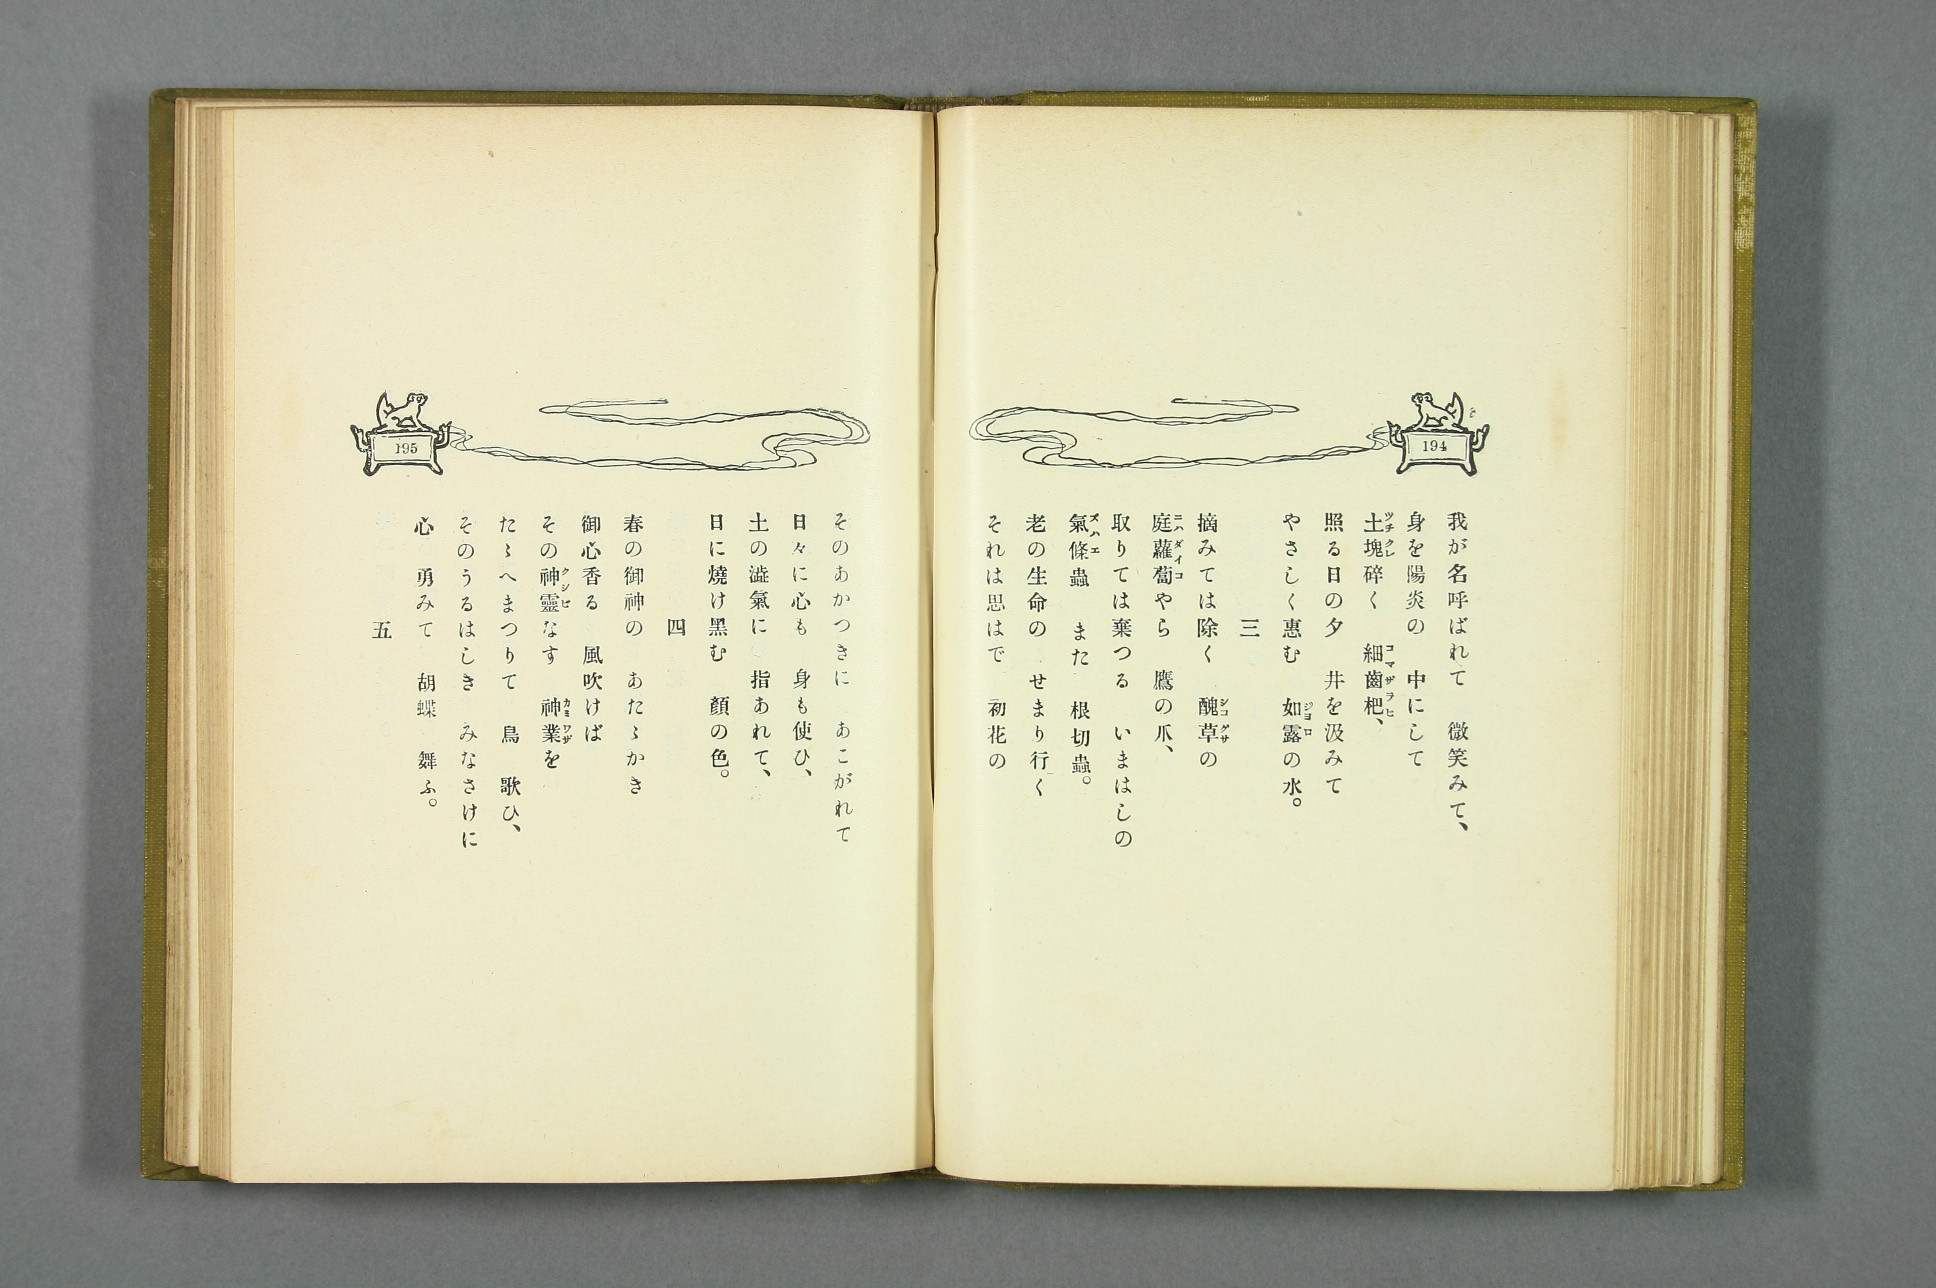 194
我が名呼ばれて　微笑みて、
身を陽炎の　中にして
土塊碎く　細齒杷、
照る日の夕　井を汲みて
やさしく惠む　如露の水。
三
摘みては除く　醜草の
庭蘿蔔やら　鷹の爪、
取りては棄つる　いまはしの
氣條蟲　また　根切蟲。
老の生命の　せまり行く
それは思はで　初花の
195
そのあかつきに　あこがれて
日々に心も　身も使ひ、
土の澁氣に　指あれて、
日に燒け黑む　顏の色。
四
春の御神の　あたゝかき
御心香る　風吹けば
その神靈なす　神業を
たゝへまつりて　鳥　歌ひ、
そのうるはしき　みなさけに
心　勇みて　胡蝶　舞ふ。
五